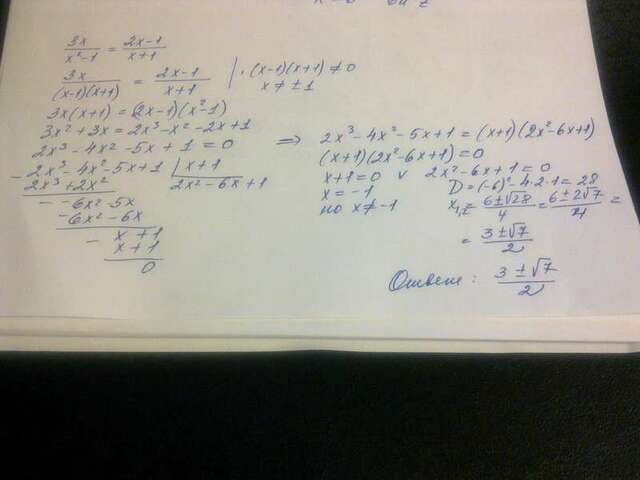 3x/(x²-1) = (2x-1)/(x+1)
3x/((x-1)(x+1)) = (2x-1)/(x+1) | · (x-1)(x+1) ≠ 0
x ≠ ±1
3x(x+1) = (2x-1)(x²-1)
3x² + 3x = 2x³ - x² - 2x + 1
2x³ - 4x² - 5x + 1 = 0
- 2x³ - 4x² - 5x + 1 | x+1
2x³ + 2x² 2x² - 6x + 1
- -6x² - 5x
-6x² - 6x
- x + 1
x + 1
0
⇒ 2x³ - 4x² - 5x + 1 = (x+1)(2x² - 6x + 1)
(x+1)(2x² - 6x + 1) = 0
x + 1 = 0 v 2x² - 6x + 1 = 0
x = -1 D = (-6)² - 4·2·1 = 28
но x ≠ -1 x₁,₂ = (6 ± √28)/4 = (6 ± 2√7)/4 =
= (3 ± √7)/2
Ответ: (3 ± √7)/2